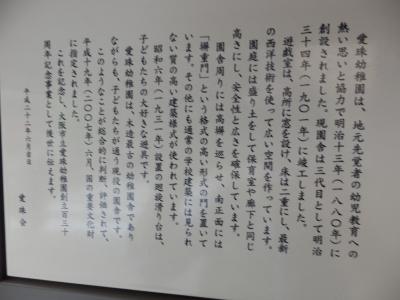 愛珠幼稚園は、地元先覚者の幼児教育への
熱い思いと協力で明治十三年(一八八〇年)に
創設されました。現園舎は三代目として明治
三十四年(一九〇一年)に竣工しました。
遊戯室は、高所に窓を設け、床は二重にし、最新
の西洋技術を使って広い空間を作っています。
園庭には盛り土をして保育室や廊下と同じ
高さにし、安全性と広さを確保しています。
園舎周りには高塀を巡らせ、南正面には
「塀重門」という格式の高い形式の門を置いて
います。その他にも通常の学校建築には見られ
ない質の高い建築様式が使われています。
昭和六年(一九三一年)設置の廻旋滑り台は、
子どもたちの大好きな遊具です。
愛珠幼稚園は、木造最古の幼稚園舎であり
ながらも、子どもたちが通う現役の園舎です。
このようなことが総合的に判断、評価されて、
平成十九年(二〇〇七年)六月、国の重要文化財
に指定されました。
これを記念し、大阪市立愛珠幼稚園創立百三十
周年記念事業として後世に伝えます。
平成二十二年六月吉日
愛珠会